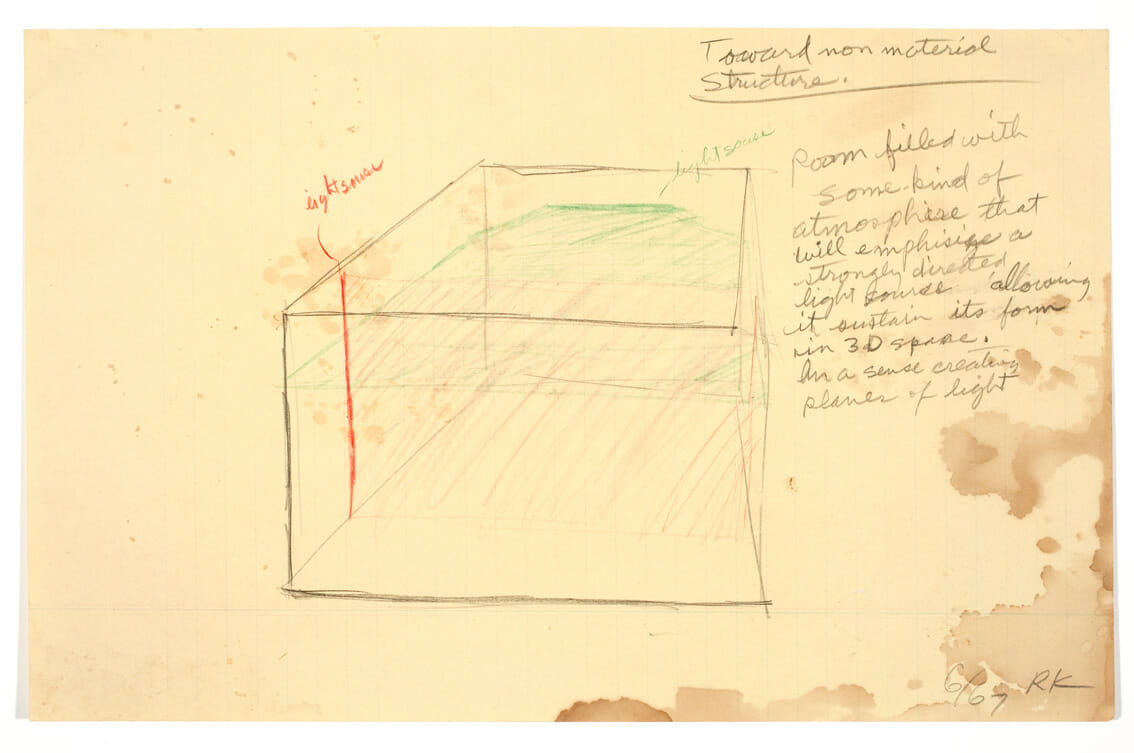 Toward non material
Structure.
light souse
light souse
Room filled with
some kind of
atmosphire that
will emphisize a
strongly directed
light sourse allowing
it sustain its form
in 3D space.
In a sense creating
planes of light
6/67 RK